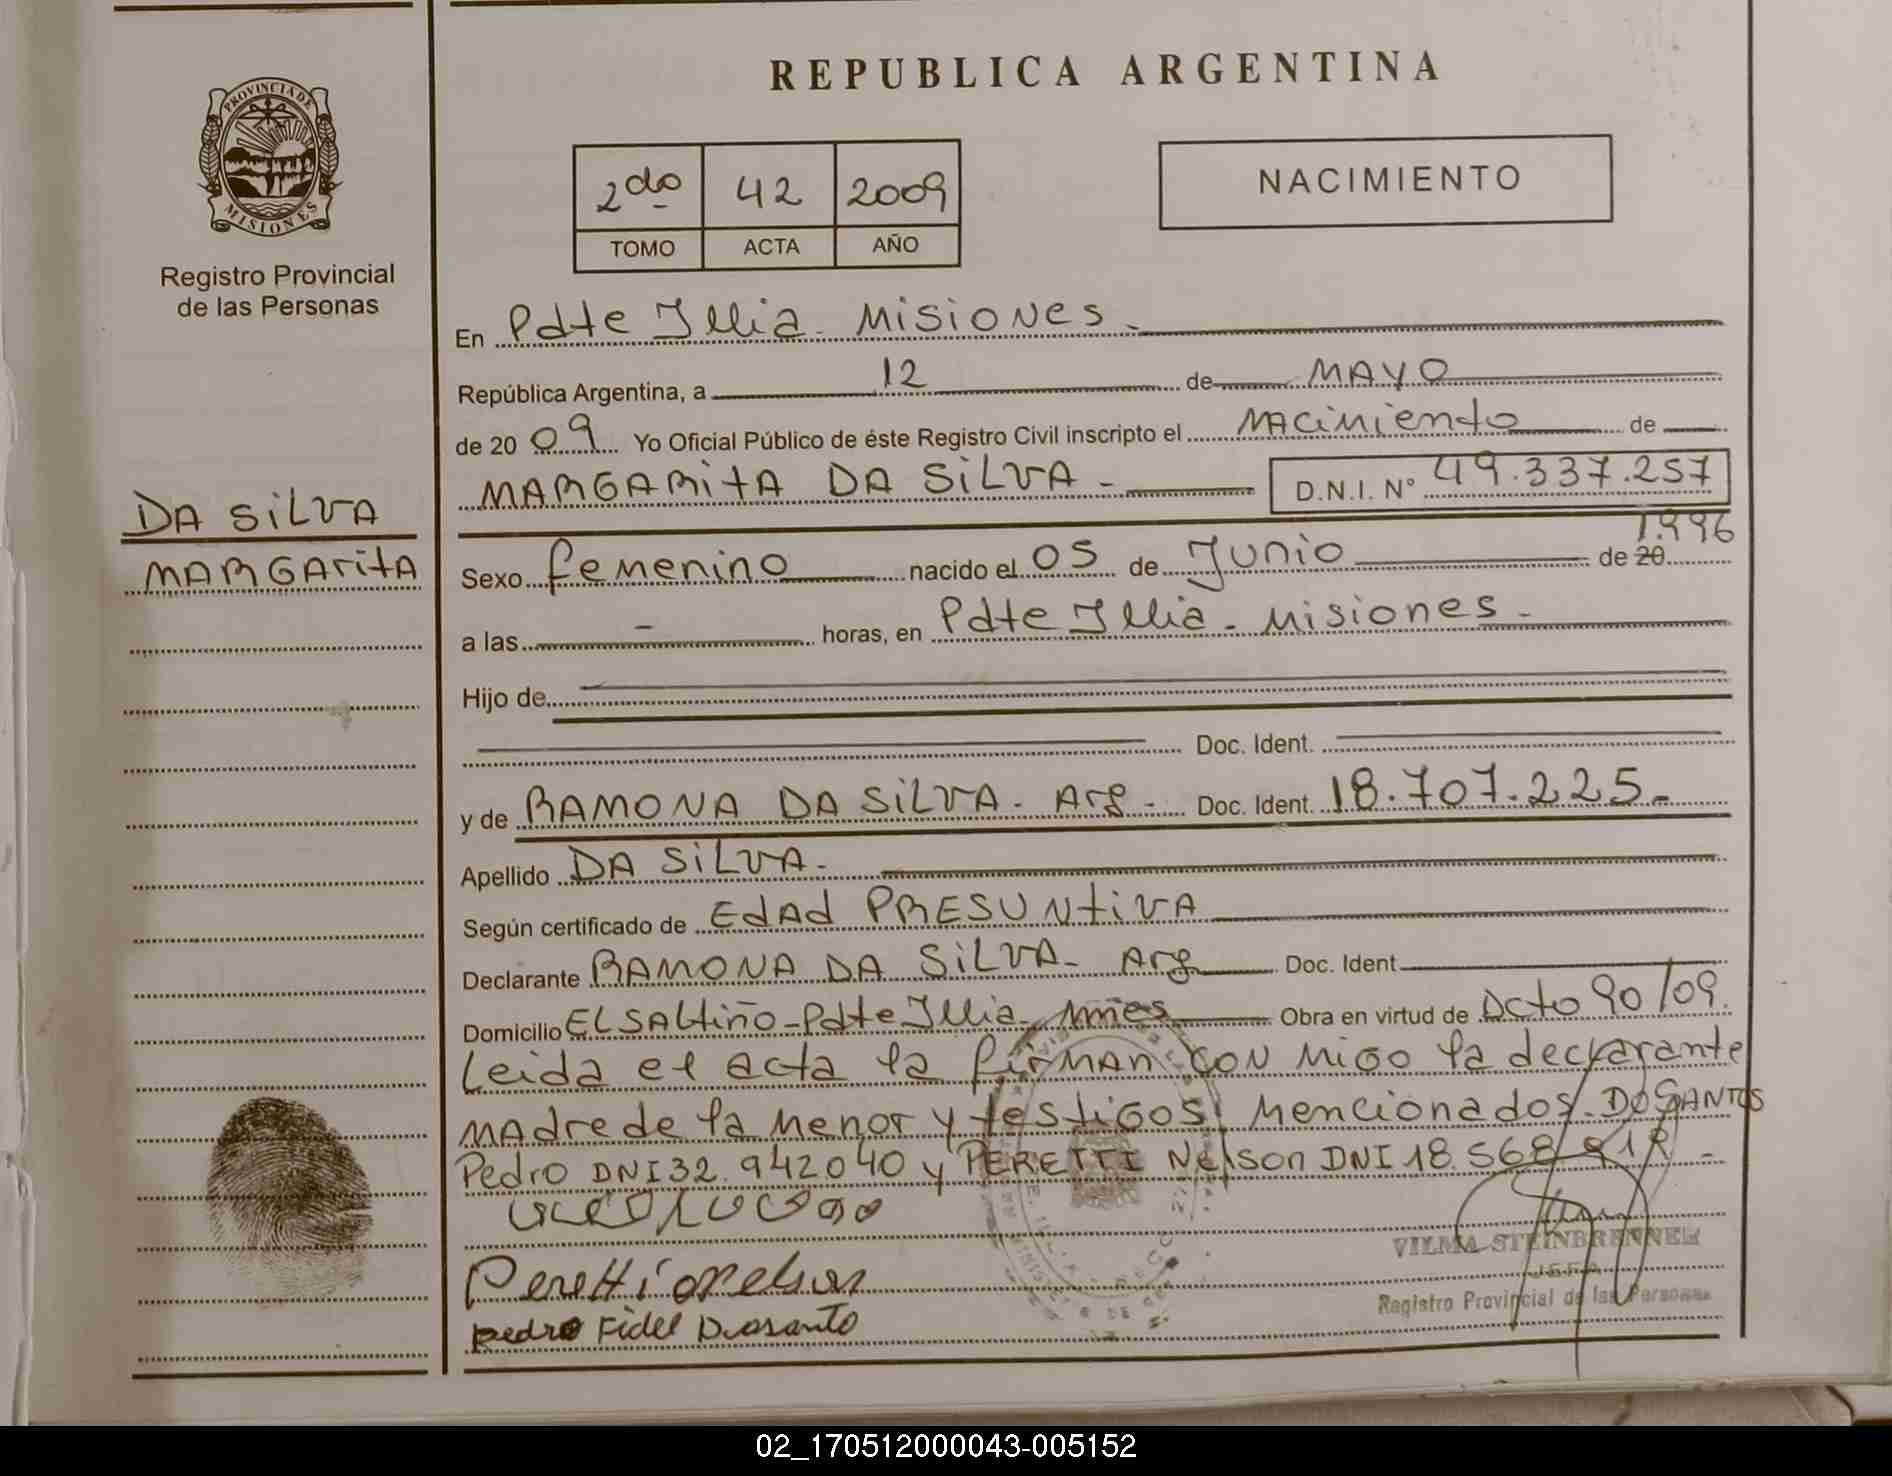 PROVINCIA DE
MISIONES
Registro Provincial
de las Personas
DA SILVA
MARGARITA
REPUBLICA ARGENTINA
2do 42 2009
TOMO ACTA AÑO
NACIMIENTO
En Pdte Illia - Misiones -
República Argentina, a 12 de MAYO
de 20 09 Yo Oficial Público de éste Registro Civil inscripto el Nacimiento de
MARGARITA DA SILVA - D.N.I. N° 49.337.257
1.996
Sexo femenino nacido el 05 de Junio de 20
a las - horas, en Pdte Illia - Misiones -
Hijo de
Doc. Ident.
y de RAMONA DA SILVA - Arg - Doc. Ident. 18.707.225 -
Apellido DA SILVA -
Según certificado de EDAD PRESUNTIVA
Declarante RAMONA DA SILVA - Arg Doc. Ident
Domicilio EL SALTIÑO - Pdte Illia - Mnes Obra en virtud de Dcto 90/09.
Leida el acta la firman con migo la declarante
madre de la menor y testigos mencionados. DOSANTOS
Pedro DNI 32.942040 y PERETTI Nelson DNI 18.568
Peretti onelson
Pedro Fidel Dosanto
VILMA STEINBRENNER
JEFA
Registro Provincial de las Personas
02_170512000043-005152